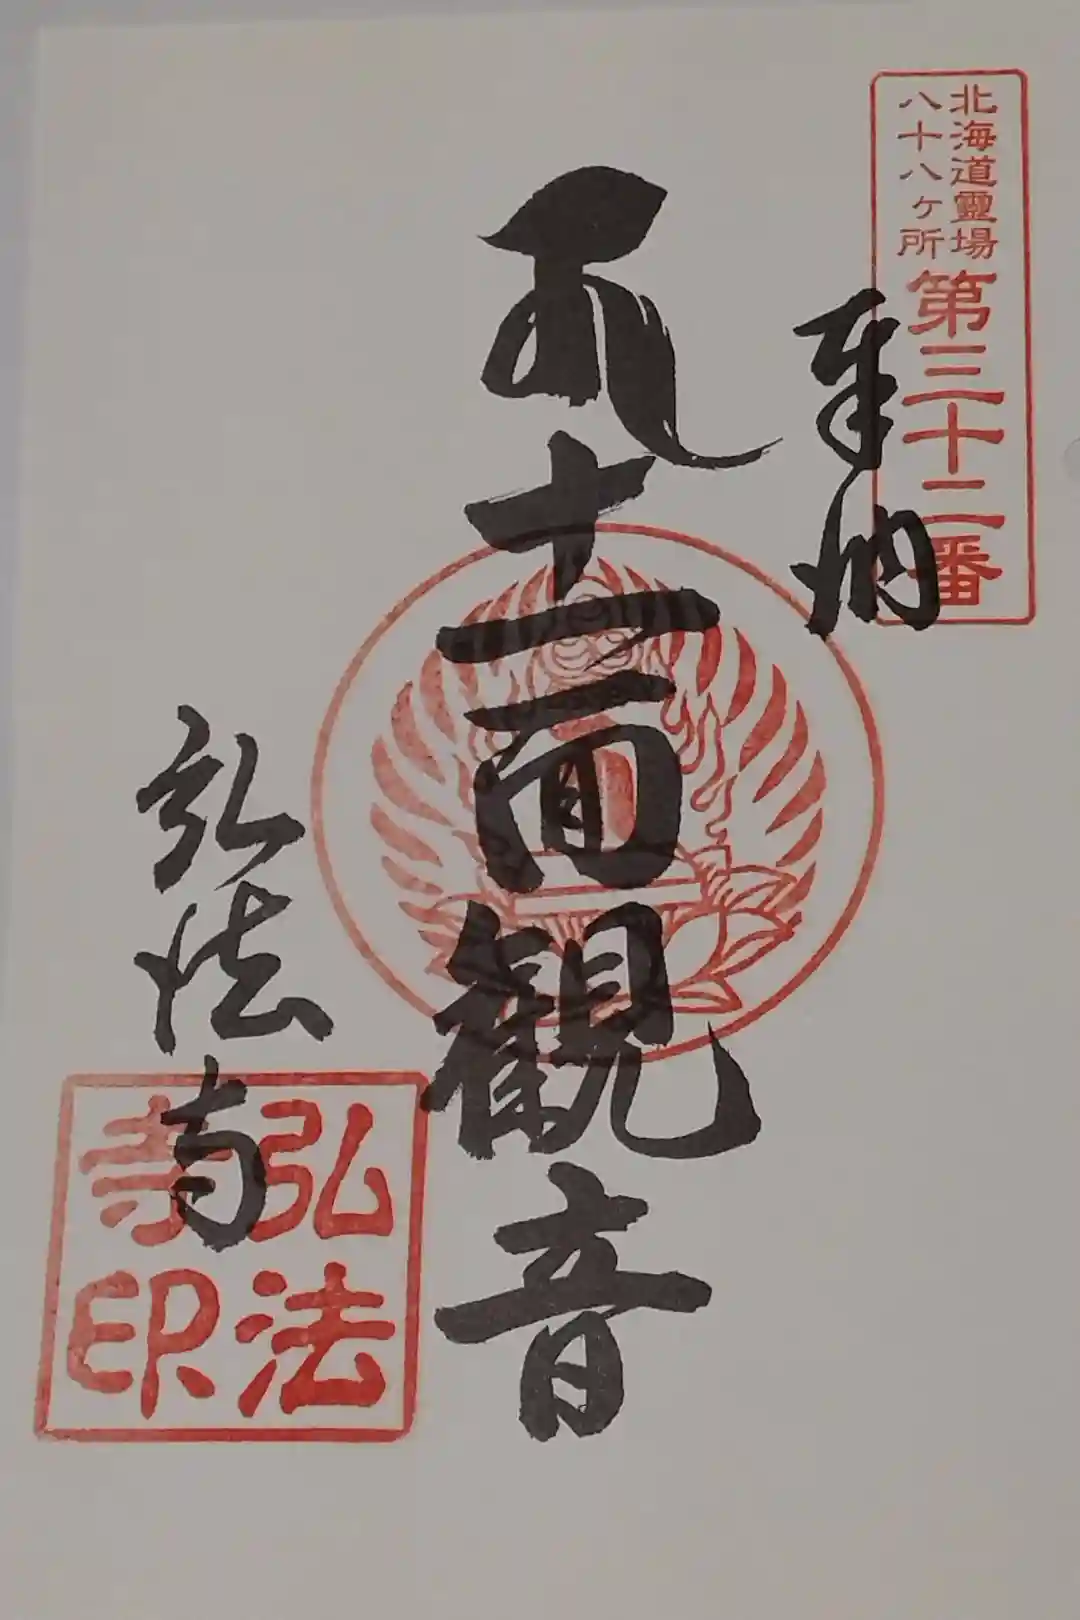 北海道靈場
八十八ヶ所
第三十二番
奉納
十一面觀音
弘法寺
弘法
寺印